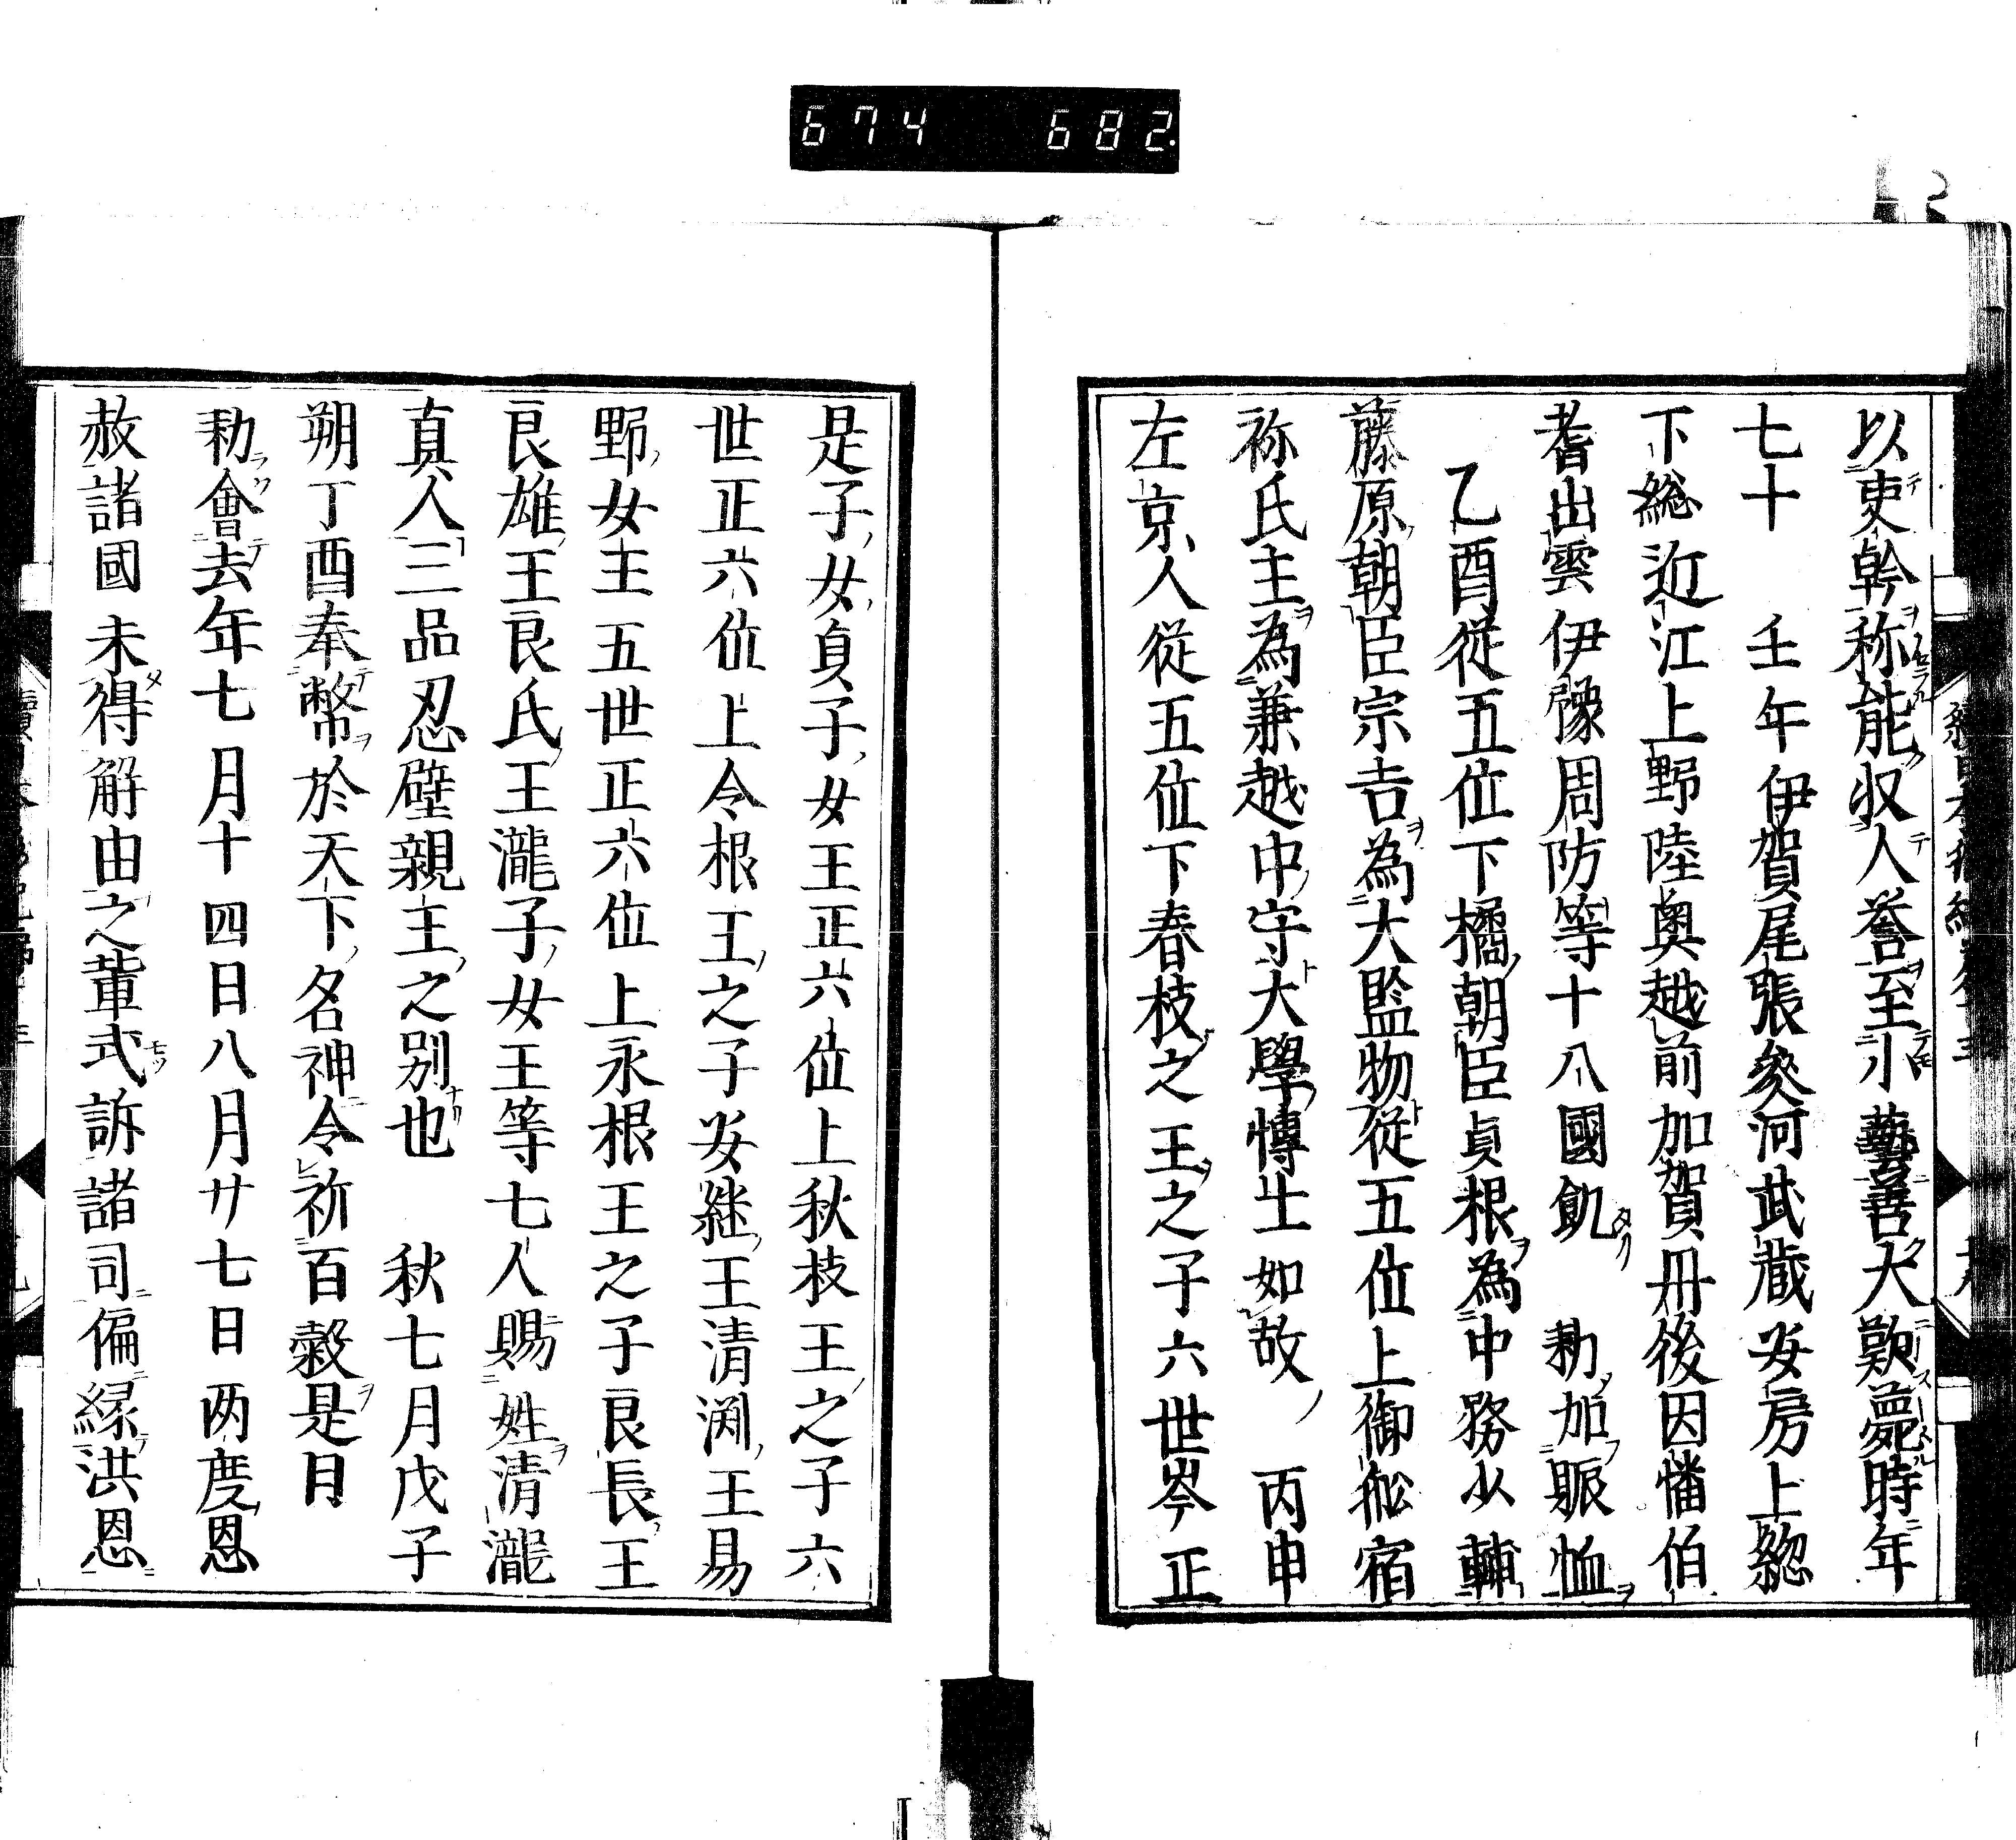 674 682
以吏幹称能収人誉至小藝善大歎薨時年
七十 壬午伊賀尾張参河武蔵安房上総
下総近江上野陸奥越前加賀丹後因幡伯
耆出雲伊豫周防等十八國飢 勅加賑恤
乙酉従五位下橘朝臣貞根為中務少輔
藤原朝臣宗吉為大監物従五位上御船宿
祢氏主為兼越中守大學愽士如故 丙申
左京人従五位下春枝之王之子六世岑正
是子女貞子女王正六位上秋枝王之子六
世正六位上令根王之子安継王清渕王易
野女王五世正六位上永根王之子良長王
良雄王良氏王瀧子女王等七人賜姓清瀧
真人三品忍壁親王之別也 秋七月戊子
朔丁酉奉幣於天下名神令祈百穀是月
勅會去年七月十四日八月廿七日両度恩
赦諸國未得解由之輩或訴諸司偏縁洪恩